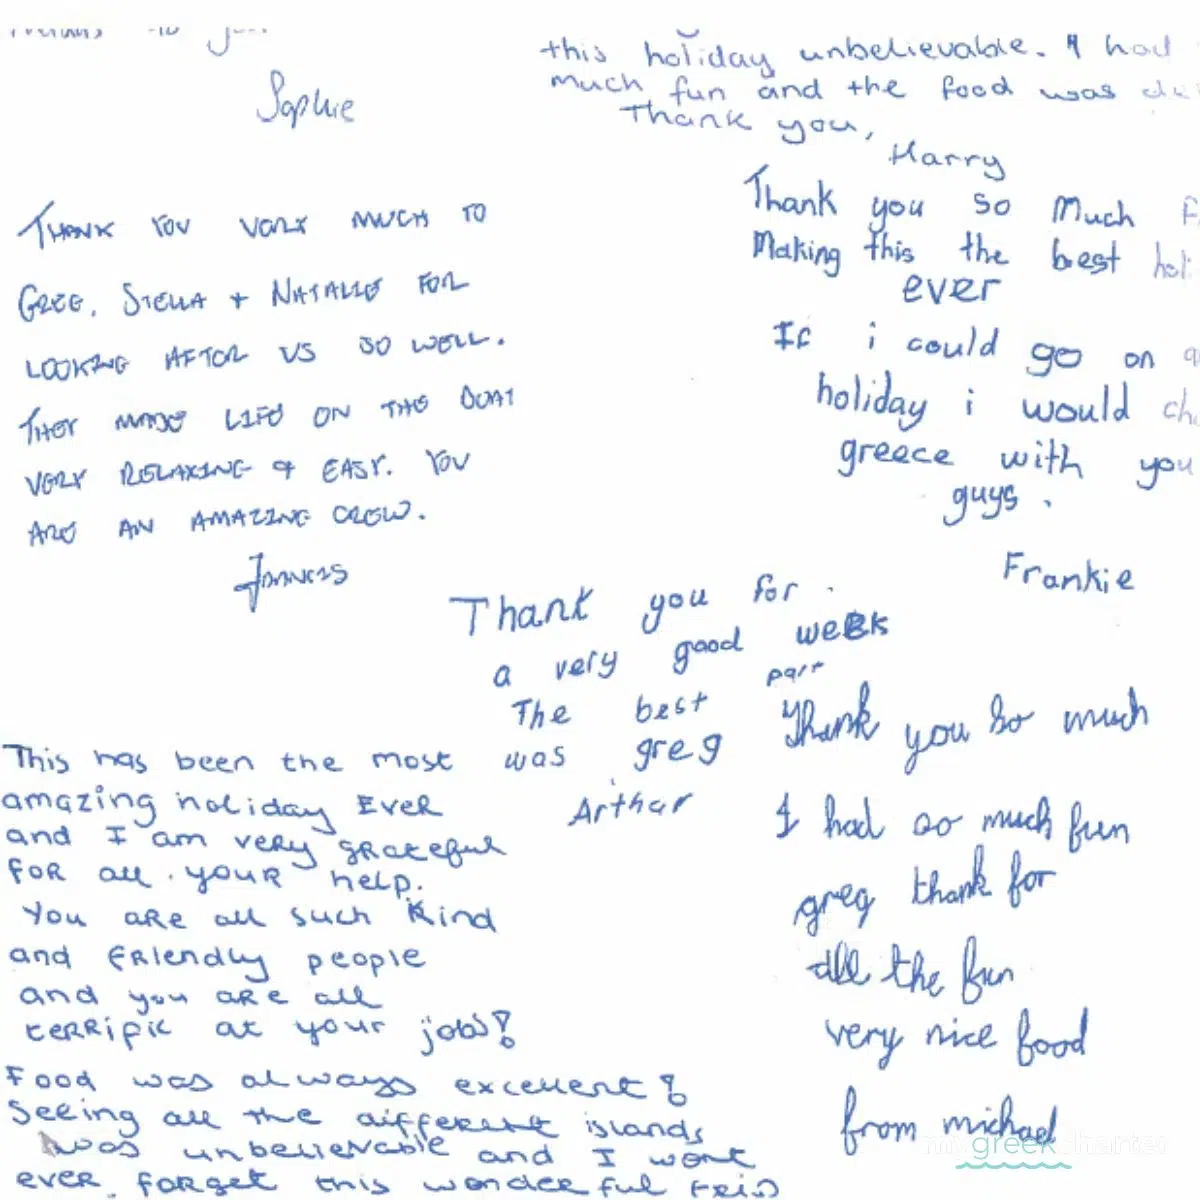 Sophie
this holiday unbelievable. I had
much fun and the food was
Thank you,
Harry
THANK YOU VERY MUCH TO
GREG, STELLA + NATALIE FOR
LOOKING AFTER US SO WELL.
THEY MADE LIFE ON THE BOAT
VERY RELAXING & EASY. YOU
ARE AN AMAZING CREW.
FRANCIS
Thank you so Much
Making this the best
ever
If i could go on
holiday i would
greece with you
guys.
Frankie
Thank you for
a very good week
The best part
was greg
Arthur
This has been the most
amazing holiday EVER
and I am very grateful
FOR all YOUR help.
You are all such kind
and friendly people
and you are all
terrific at your jobs!
Food was always excellent!
Seeing all the different islands
was unbelievable and I wont
ever forget this wonderful
Thank you so much
I had so much fun
greg thank for
all the fun
very nice food
from michael
mygreekcharter